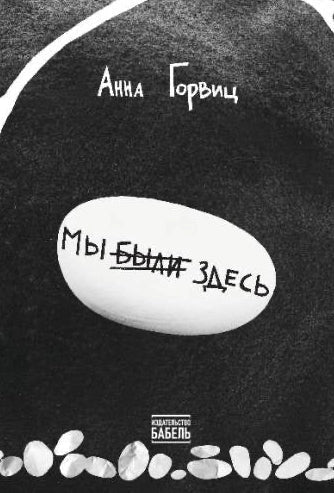 Анна Горвиц
Мы были здесь
ИЗДАТЕЛЬСТВО
БАБЕЛЬ